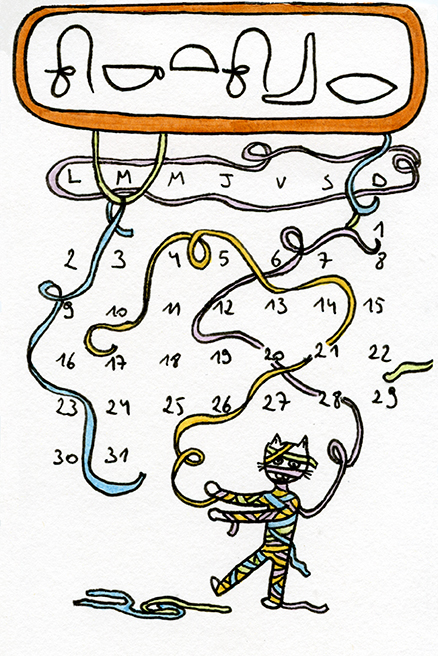 𓍯𓎡𓏏𓍯𓃀𓂋
L M M J V S D
1
2 3 4 5 6 7 8
9 10 11 12 13 14 15
16 17 18 19 20 21 22
23 24 25 26 27 28 29
30 31